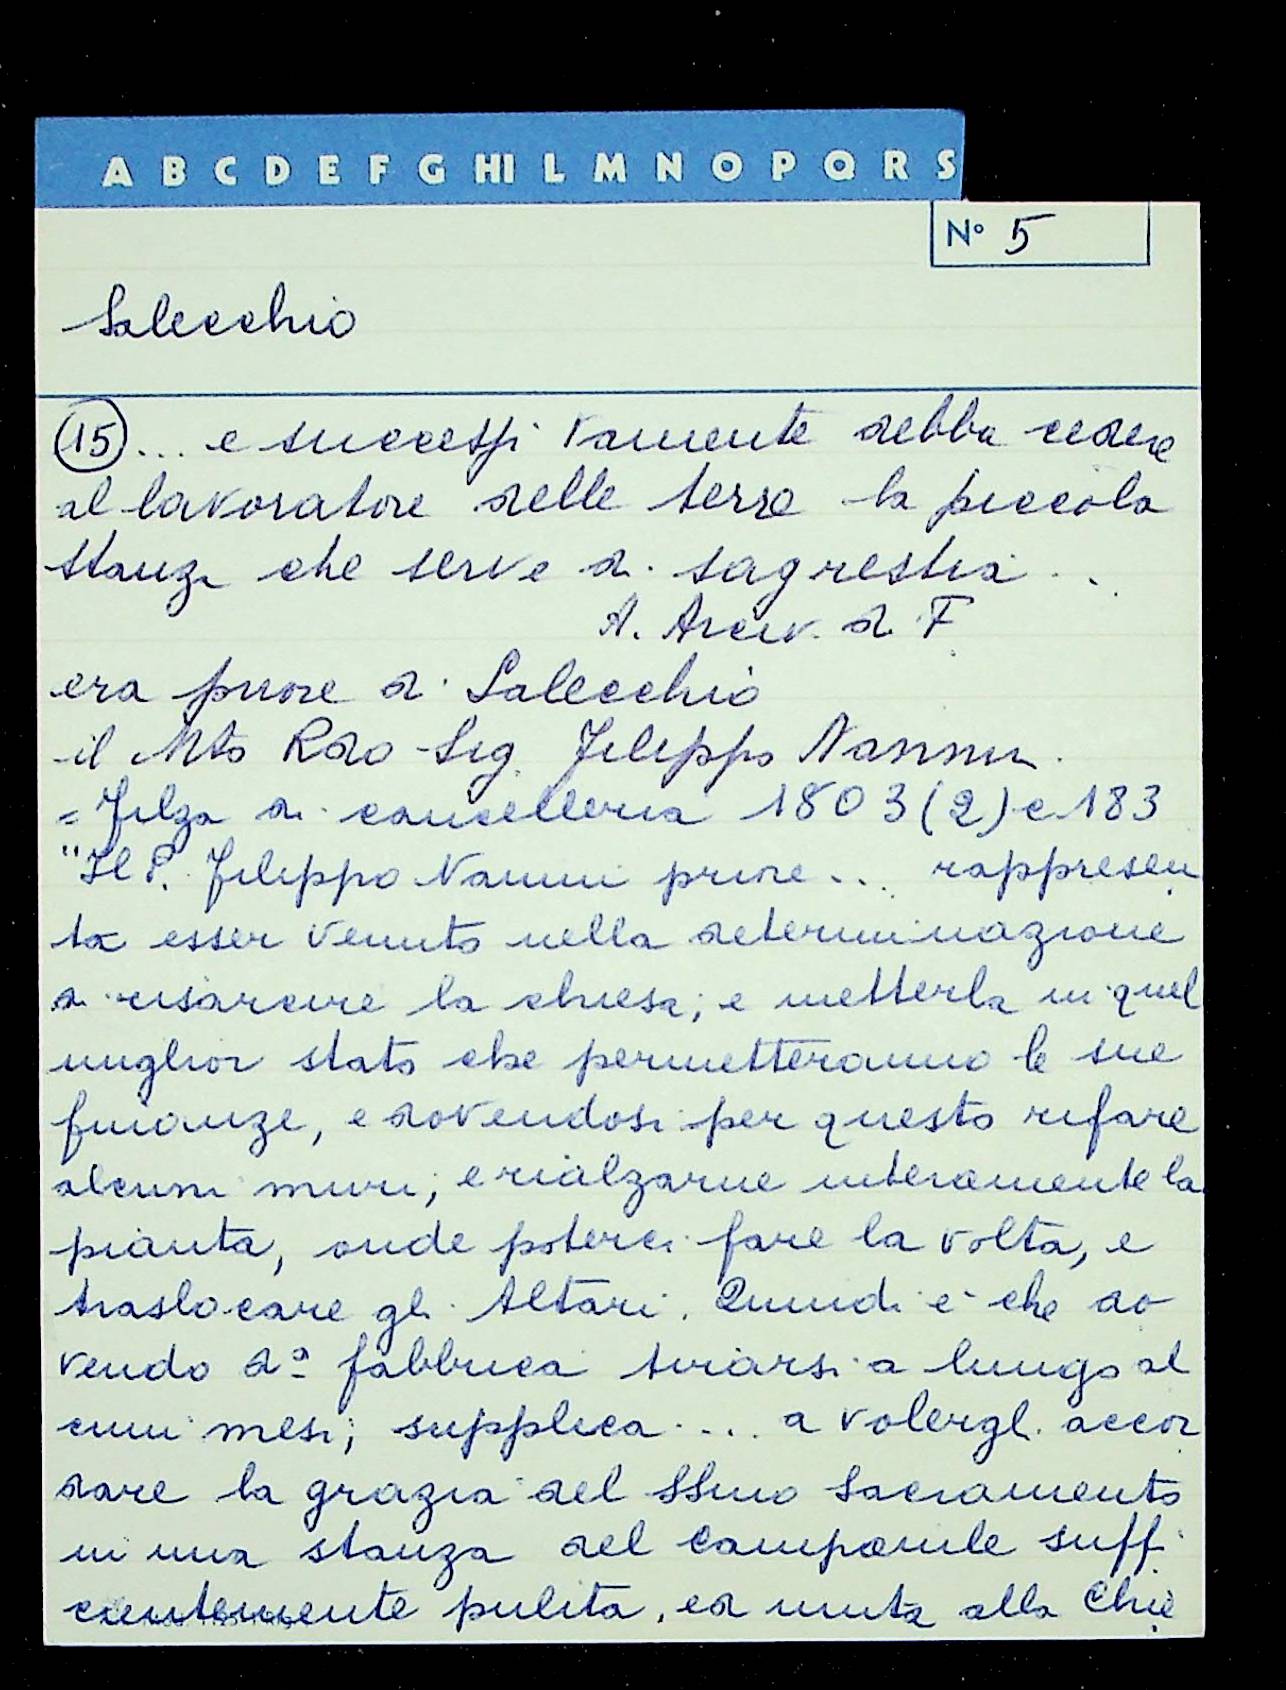 A B C D E F G HI L M N O P Q R S
N° 5
Salecchio
(15) ... e successivamente debba cedere
al lavoratore delle terre la piccola
stanza che serve di sagrestia ..
A. Arciv. di F.
era priore di Salecchio
il Mto Rdo Sig. Filippo Nannini
= Filza di cancelleria 1803 (2) c 183
"Il P. Filippo Nannini priore ... rappresen
ta esser venuto nella determinazione
di risarcire la chiesa; e metterla in quel
miglior stato che permetteranno le sue
finanze, e dovendosi per questo rifare
alcuni muri; e rialzarne interamente la
pianta, onde poterci fare la volta, e
traslocare gli Altari. Quindi è che do
vendo da fabbrica tirarsi a lungo al
cuni mesi; supplica ... a volergli accor
dare la grazia del SSmo Sacramento
in una stanza del campanile suffi
cientemente pulita, ed unita alla Chie